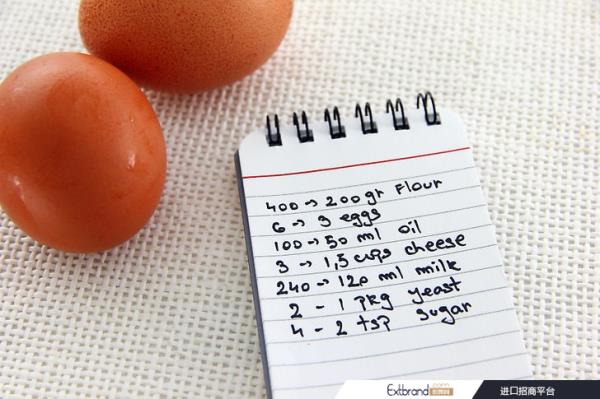 400 → 200 gr Flour
6 → 3 eggs
100 → 50 ml oil
3 → 1,5 cups cheese
240 → 120 ml milk
2 - 1 pkg yeast
4 - 2 tsp sugar
Extbrand.com
进口招商平台